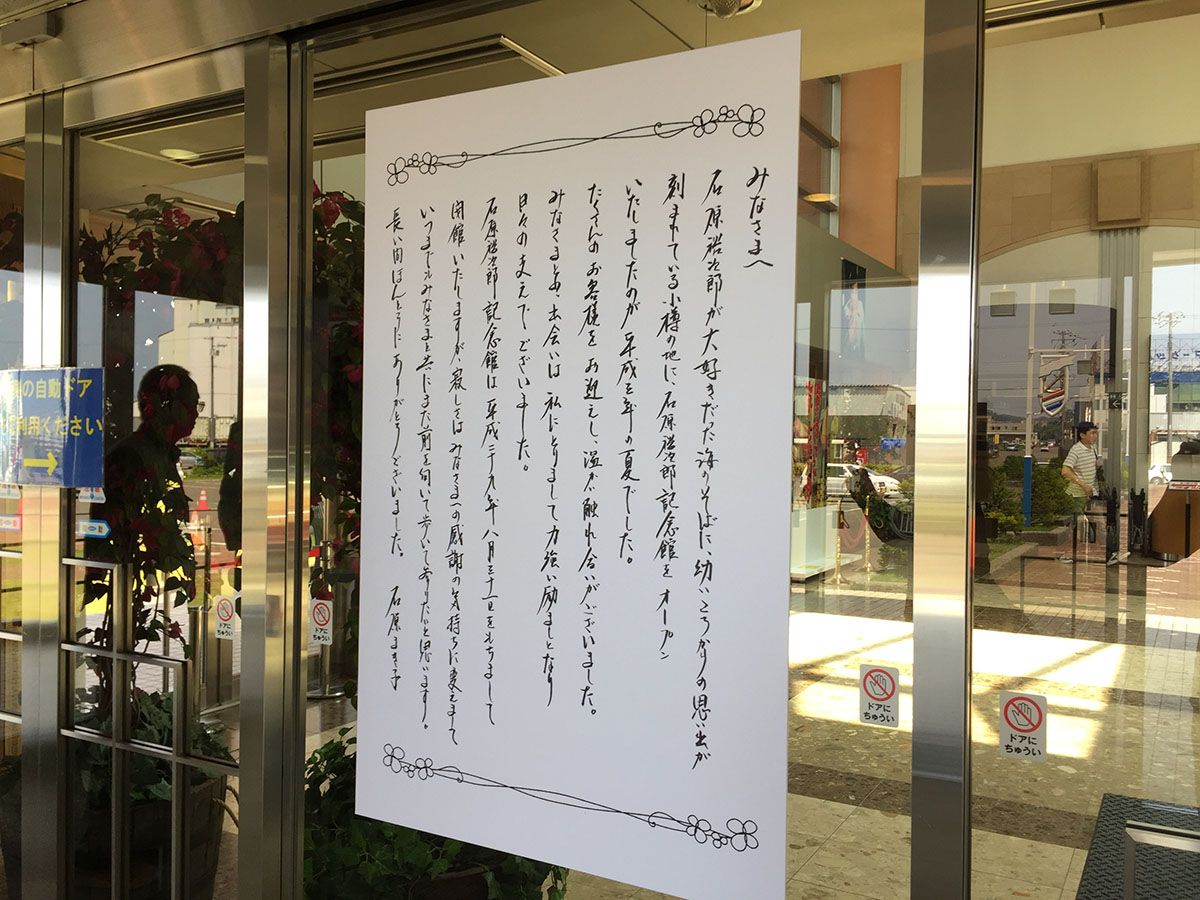 みなさまへ
石原裕次郎が大好きだった海のそばに、幼いころからの思い出が
刻まれている小樽の地に、石原裕次郎記念館をオープン
いたしましたのが平成三年の夏でした。
たくさんのお客様をお迎えし、温かい触れ合いがございました。
みなさまとの出会いは、私にとりまして力強い励ましとなり
日々のまえでございました。
石原裕次郎記念館は平成二十九年八月三十一日をもちまして
閉館いたしますが、寂しさはみなさまへの感謝の気持ちに変えまして
いつまでもみなさまと共にまた前を向いて歩いて参りたいと思います。
長い間ほんとうにありがとうございました。 石原まき子
の自動ドア
利用ください
ドアに
ちゅうい
ドアに
ちゅうい
ドアに
ちゅうい
ドアに
ちゅうい